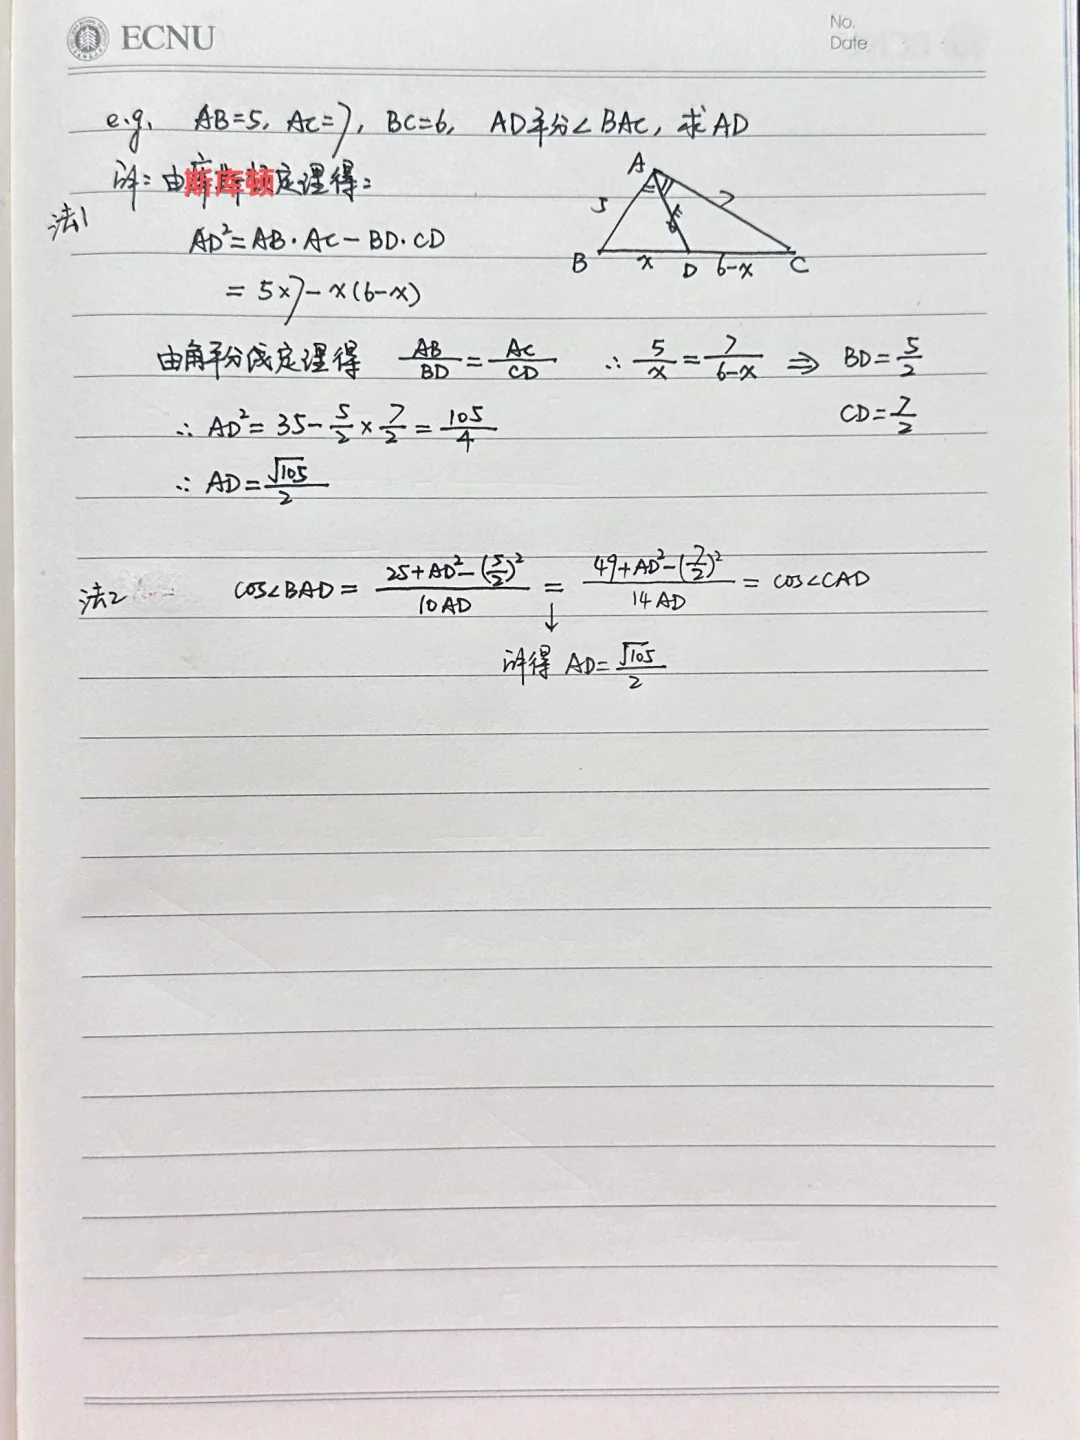 ECNU
No.
Date
e.g. AB=5, AC=7, BC=6, AD平分∠BAC, 求AD
A
5
7
B
x
D
6-x
C
解: 由斯库顿定理得:
法1
AD²=AB·AC-BD·CD
=5×7-x(6-x)
由角平分线定理得 AB/BD=AC/CD ∴ 5/x=7/(6-x) ⇒ BD=5/2
CD=7/2
∴ AD²=35-5/2×7/2=105/4
∴ AD=√105/2
法2 cos∠BAD=(25+AD²-(5/2)²)/10AD=(49+AD²-(7/2)²)/14AD=cos∠CAD
↓
解得 AD=√105/2